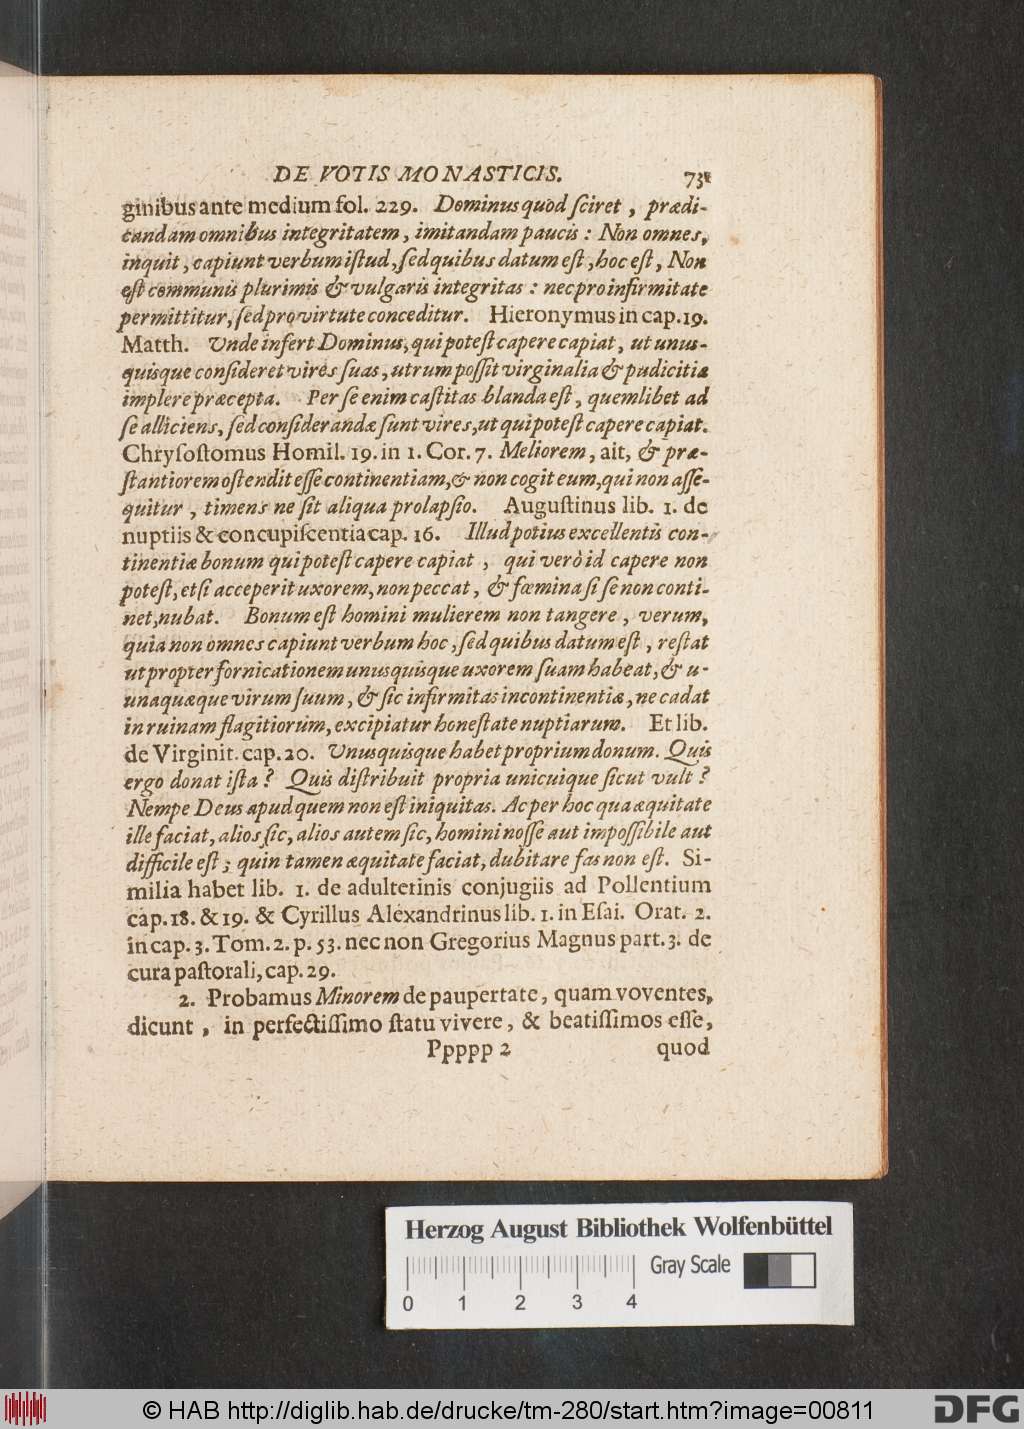 DE VOTIS MONASTICIS. 731
ginibus ante medium fol. 229. Dominus quod ſciret, prædi-
candam omnibus integritatem, imitandam paucis: Non omnes,
inquit, capiunt verbum iſtud, ſed quibus datum eſt, hoc eſt, Non
eſt communis plurimis & vulgaris integritas: nec pro infirmitate
permittitur, ſed pro virtute conceditur. Hieronymus in cap. 19.
Matth. Unde infert Dominus, qui poteſt capere capiat, ut unus-
quisque conſideret vires ſuas, utrum poſſit virginalia & pudicitiæ
implere præcepta. Per ſe enim caſtitas blanda eſt, quemlibet ad
ſe alliciens, ſed conſiderandæ ſunt vires, ut qui poteſt capere capiat.
Chryſoſtomus Homil. 19. in 1. Cor. 7. Meliorem, ait, & præ-
ſtantiorem oſtendit eſſe continentiam, & non cogit eum, qui non aſſe-
quitur, timens ne ſit aliqua prolapſio. Auguſtinus lib. 1. de
nuptiis & concupiſcentia cap. 16. Illud potius excellentis con-
tinentiæ bonum qui poteſt capere capiat, qui verò id capere non
poteſt, etſi acceperit uxorem, non peccat, & fœmina ſi ſe non conti-
net, nubat. Bonum eſt homini mulierem non tangere, verum,
quia non omnes capiunt verbum hoc, ſed quibus datum eſt, reſtat
ut propter fornicationem unusquisque uxorem ſuam habeat, & u-
unaquæque virum ſuum, & ſic infirmitas incontinentiæ, ne cadat
in ruinam flagitiorum, excipiatur honeſtate nuptiarum. Et lib.
de Virginit. cap. 20. Unusquisque habet proprium donum. Quis
ergo donat iſta? Quis diſtribuit propria unicuique ſicut vult?
Nempe Deus apud quem non eſt iniquitas. Ac per hoc qua æquitate
ille faciat, alios ſic, alios autem ſic, homini noſſe aut impoſſibile aut
difficile eſt; quin tamen æquitate faciat, dubitare fas non eſt. Si-
milia habet lib. 1. de adulterinis conjugiis ad Pollentium
cap. 18. & 19. & Cyrillus Alexandrinus lib. 1. in Eſai. Orat. 2.
in cap. 3. Tom. 2. p. 53. nec non Gregorius Magnus part. 3. de
cura paſtorali, cap. 29.
2. Probamus Minorem de paupertate, quam voventes,
dicunt, in perfectiſſimo ſtatu vivere, & beatiſſimos eſſe,
Ppppp 2 quod
Herzog August Bibliothek Wolfenbüttel
Gray Scale
0 1 2 3 4
© HAB http://diglib.hab.de/drucke/tm-280/start.htm?image=00811
DFG